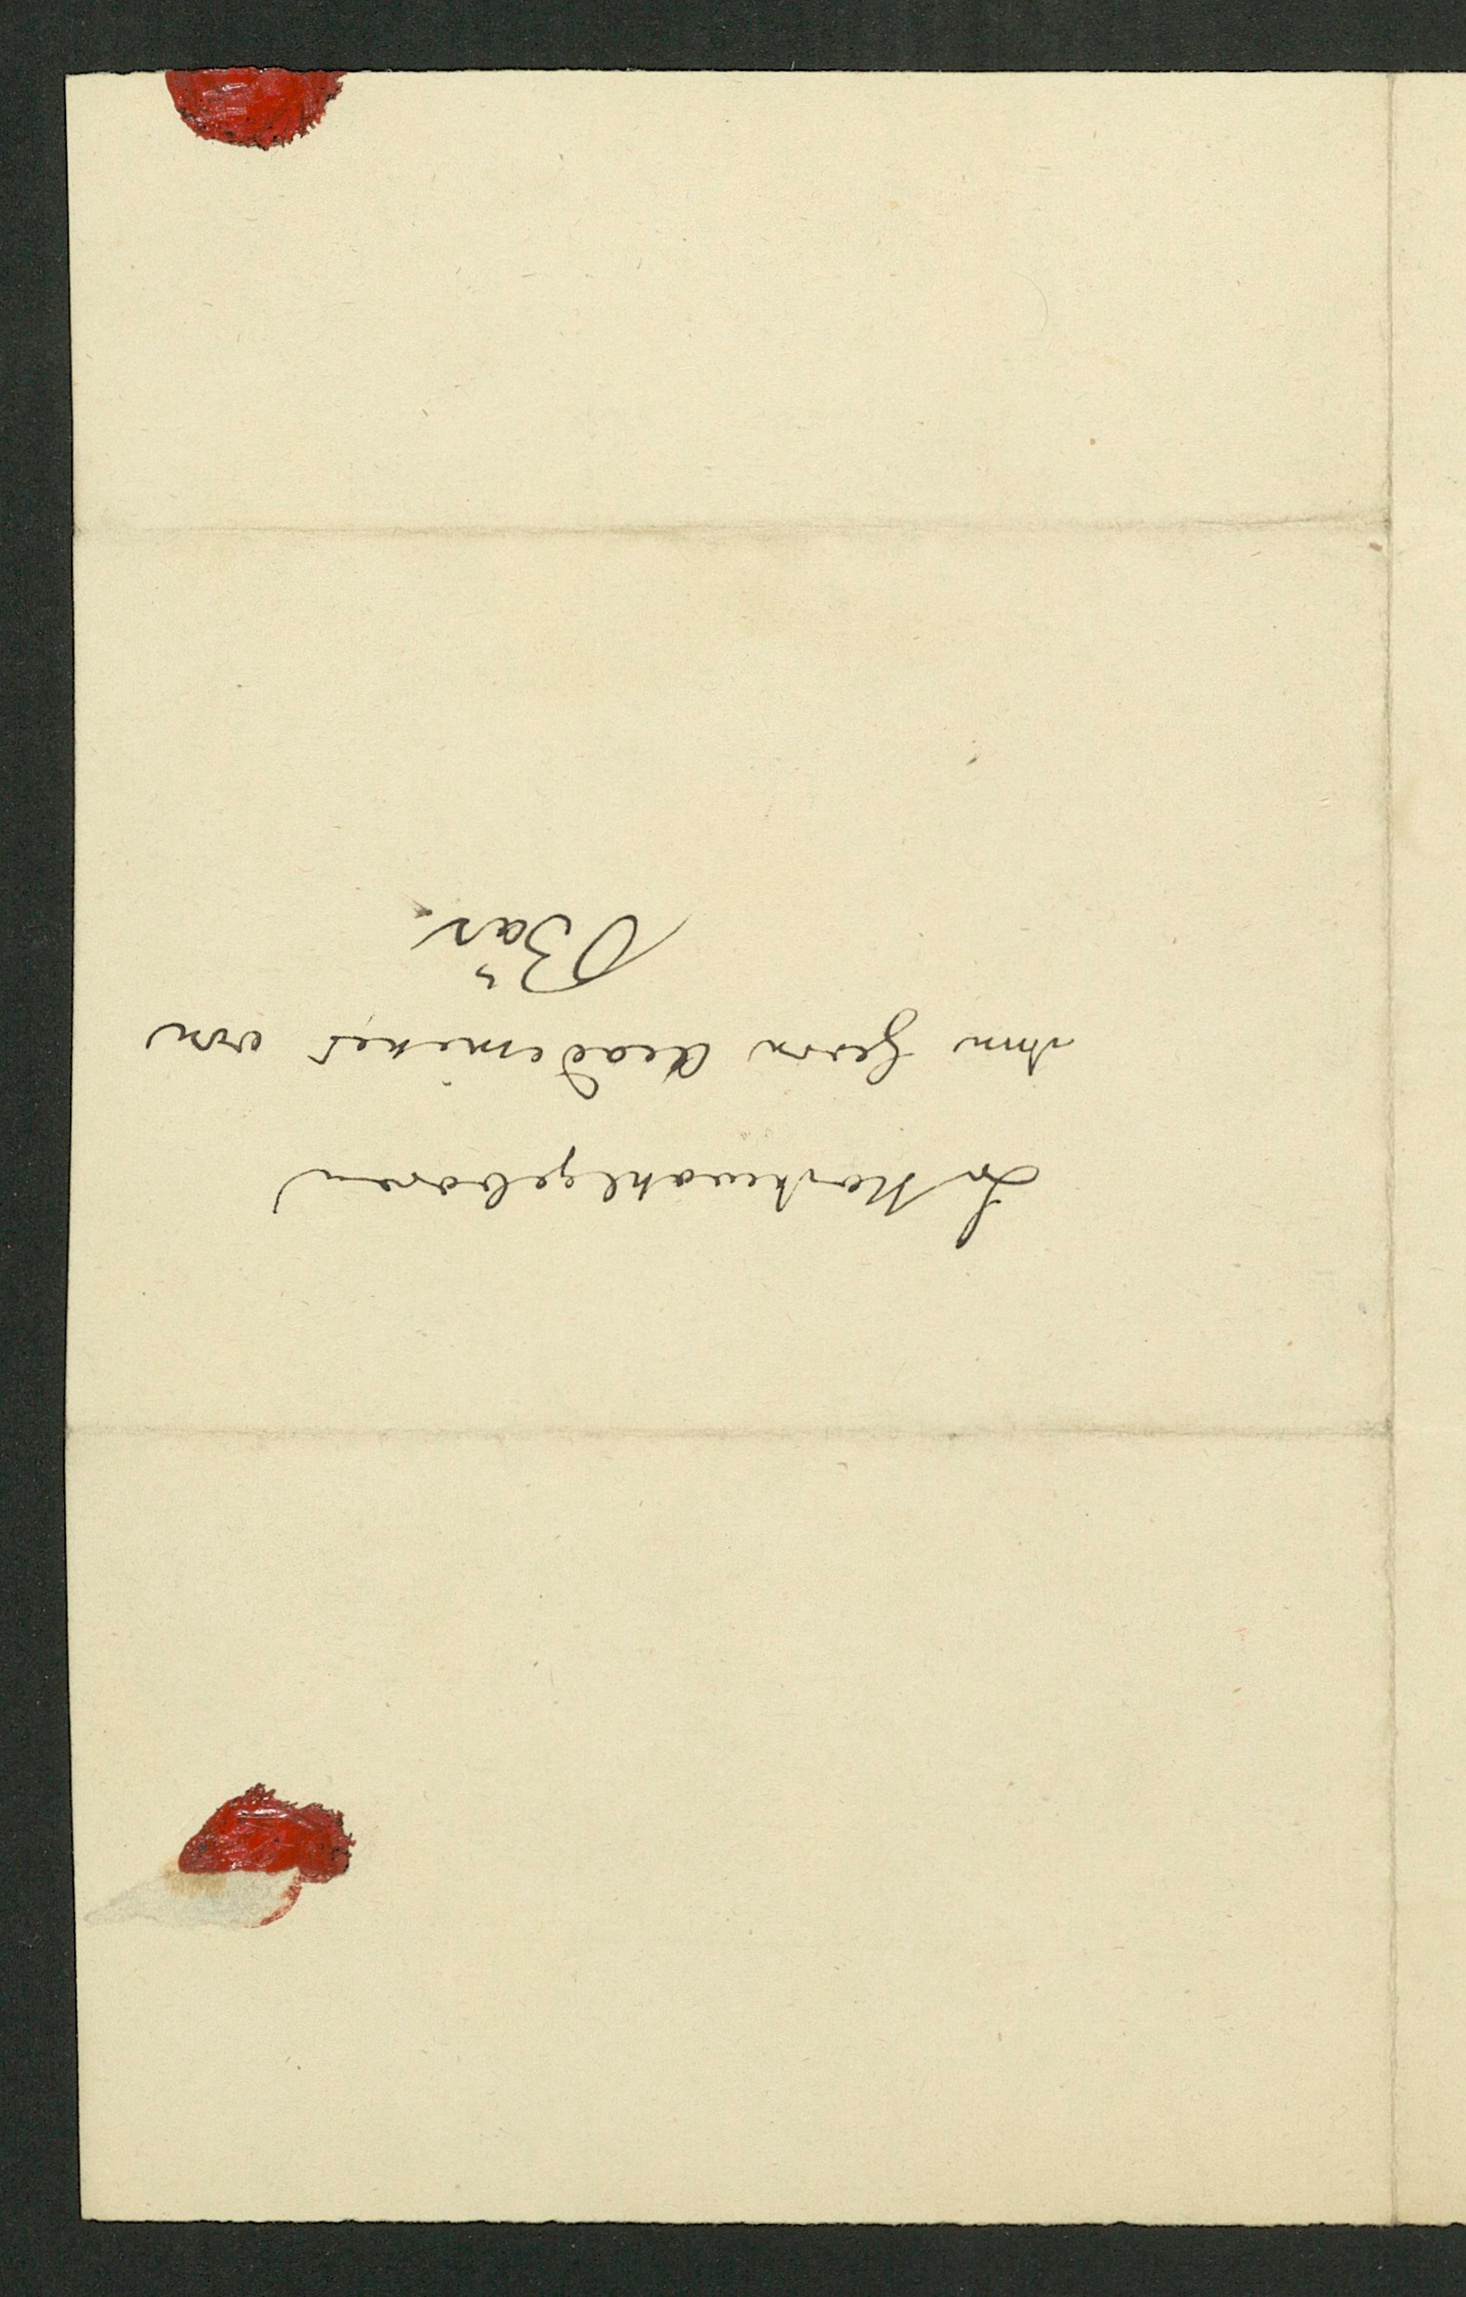 Sr Hochwohlgeboren
dem Herrn Academiker von
Bär.